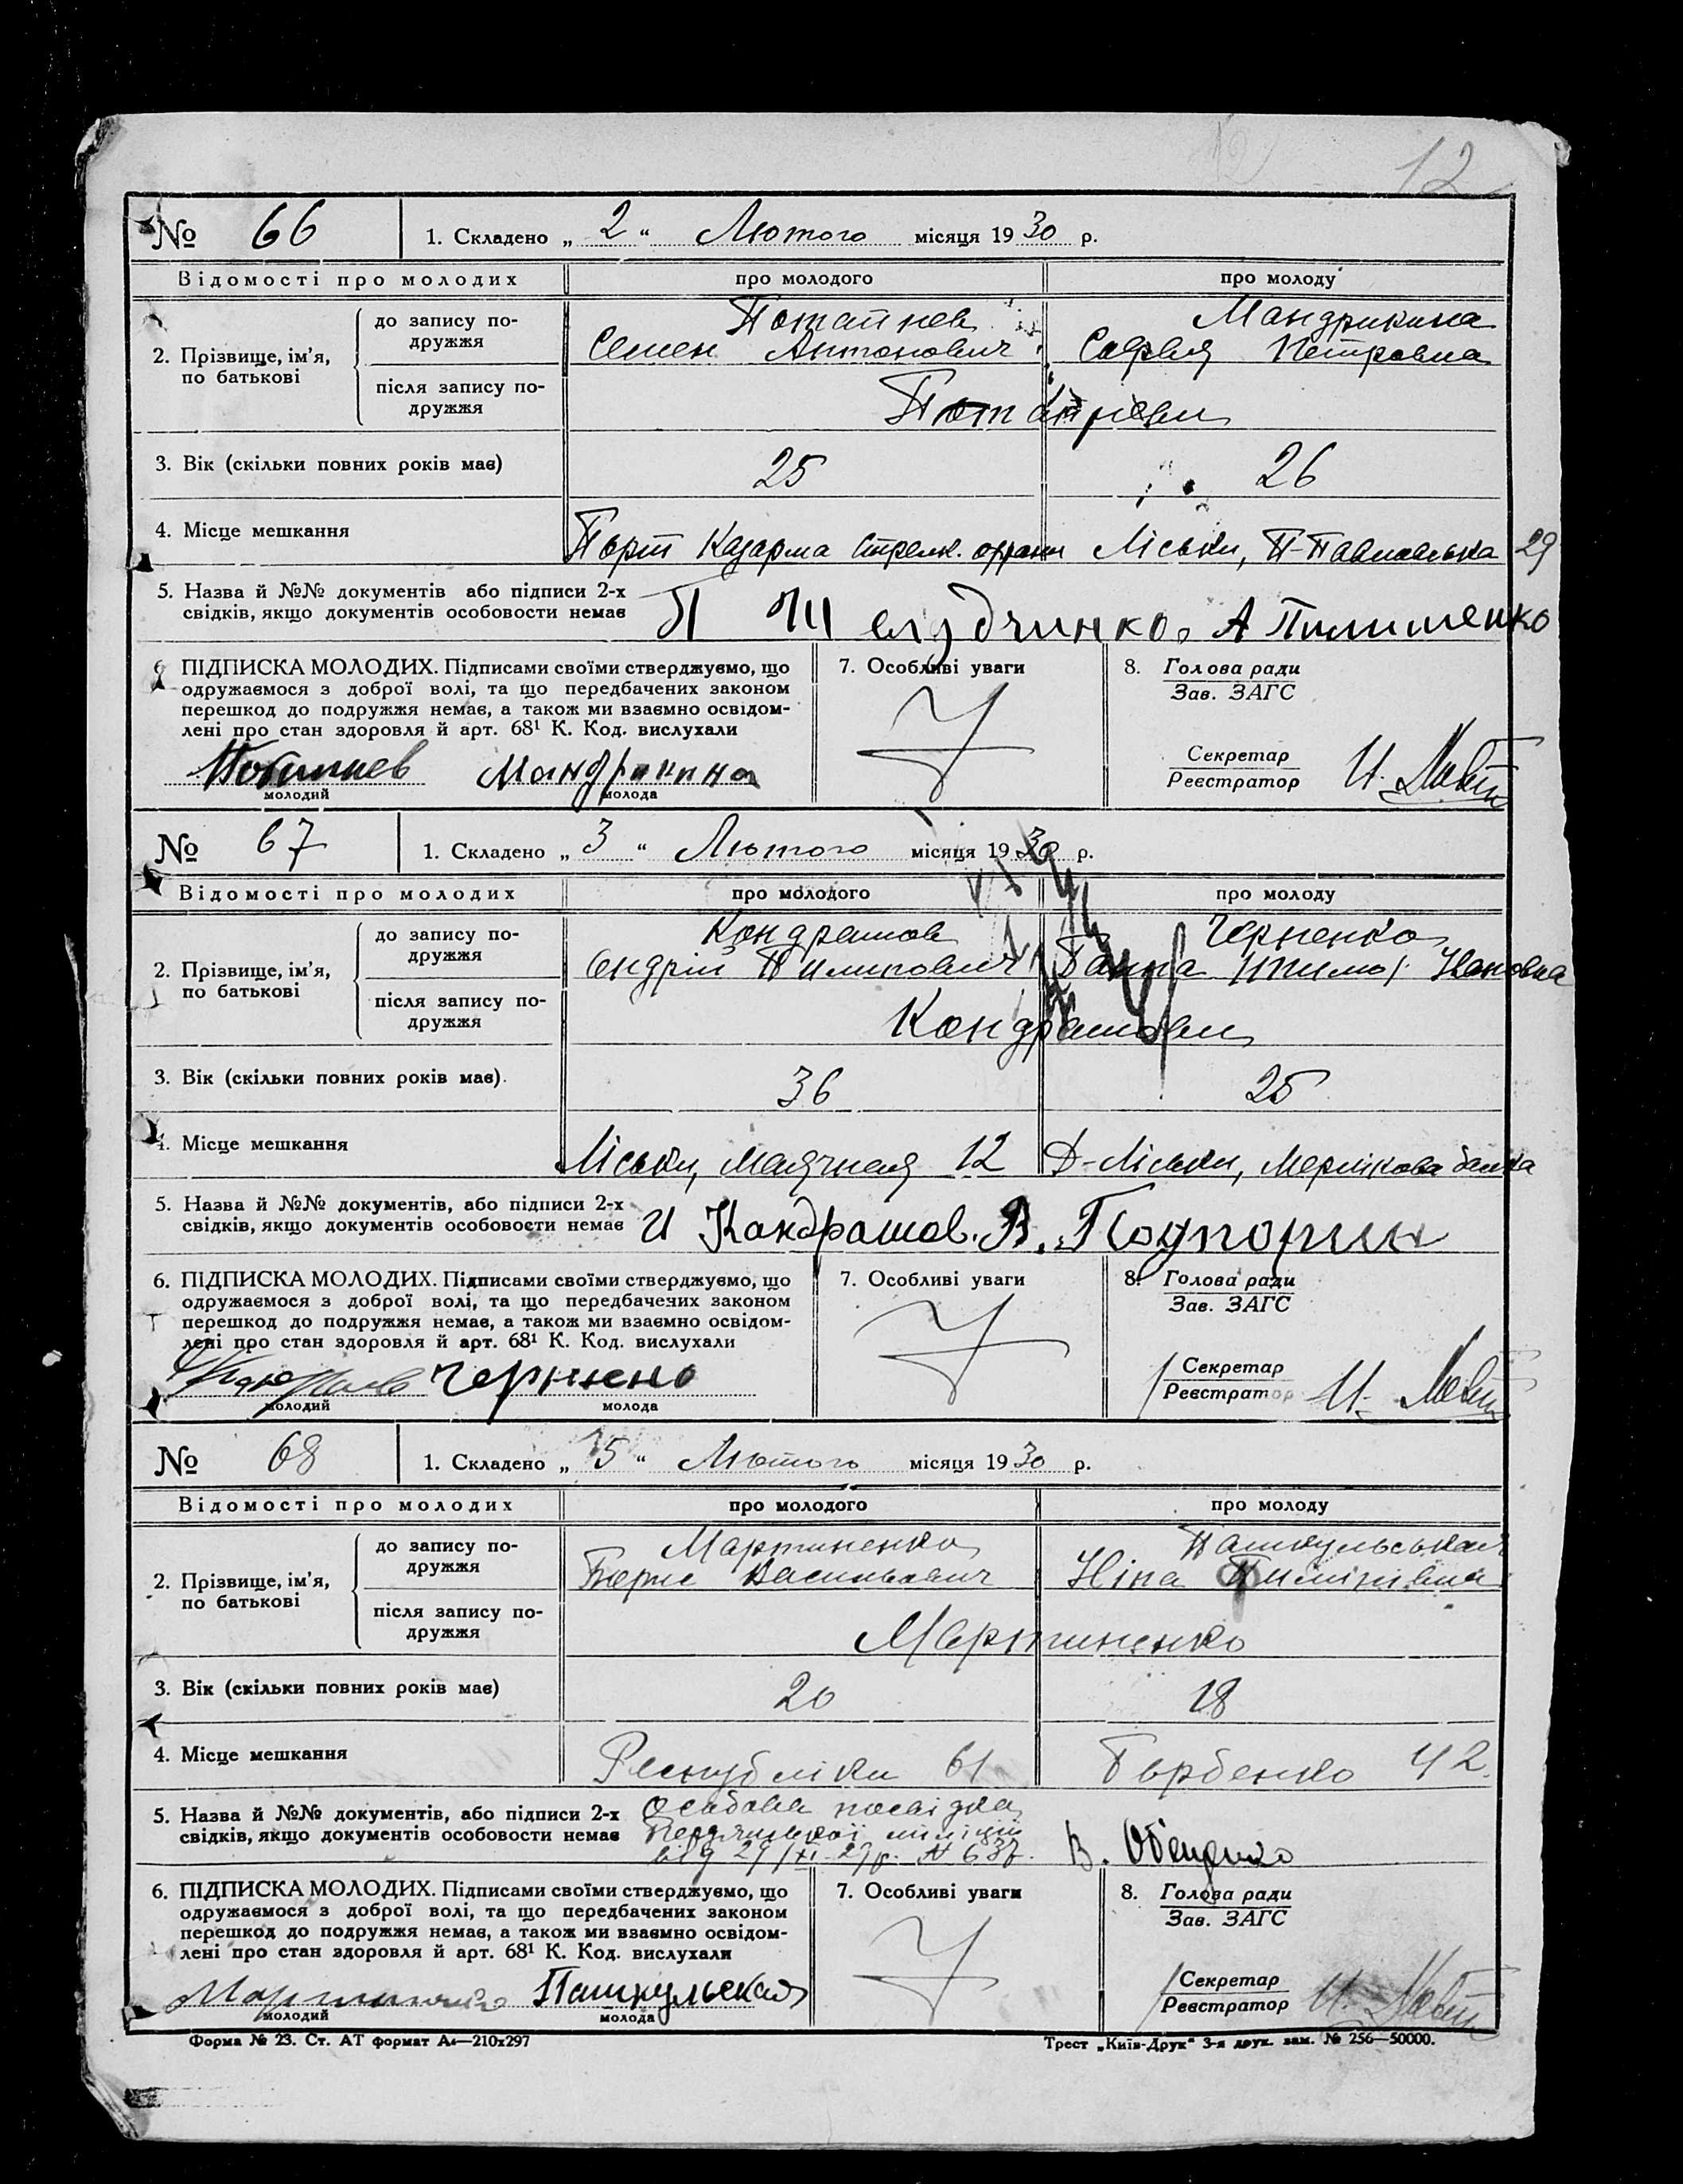 12
№ 66 1. Складено „ 2 “ Лютого місяця 19 30 р.
Відомості про молодих про молодого про молоду
2. Прізвище, ім’я, по батькові
до запису подружжя
Потапнев Мандрикина
Семен Антонович Софья Петровна
після запису подружжя
Потапневи
3. Вік (скільки повних років має) 25 26
4. Місце мешкання Порт Казарма Стрелк. охрани Ліськи, П-Павловська 29
5. Назва й №№ документів або підписи 2-х
свідків, якщо документів особовости немає П Шелудчинко, А Пилипенко
6 ПІДПИСКА МОЛОДИХ. Підписами своїми стверджуємо, що
одружаємося з доброї волі, та що передбачених законом
перешкод до подружжя немає, а також ми взаємно освідом-
лені про стан здоровля й арт. 68¹ К. Код. вислухали
Мандрикина
молодий молода
7. Особливі уваги
8. Голова ради
Зав. ЗАГС
Секретар
Реєстратор И.
№ 67 1. Складено „ 3 “ Лютого місяця 19 30 р.
Відомості про молодих про молодого про молоду
2. Прізвище, ім’я, по батькові
до запису подружжя
Кондрашов Черненко
Андрій Пилипович Ганна Ивановна
після запису подружжя
Кондрашови
3. Вік (скільки повних років має). 36 25
4. Місце мешкання Ліськи, Маячная 12 Д-Ліськи, Мерлікова балка
5. Назва й №№ документів, або підписи 2-х
свідків, якщо документів особовости немає И Кондрашов. В. Подпорин
6. ПІДПИСКА МОЛОДИХ. Підписами своїми стверджуємо, що
одружаємося з доброї волі, та що передбачених законом
перешкод до подружжя немає, а також ми взаємно освідом-
лені про стан здоровля й арт. 68¹ К. Код. вислухали
Чернено
молодий молода
7. Особливі уваги
8. Голова ради
Зав. ЗАГС
Секретар
Реєстратор И.
№ 68 1. Складено „ 5 “ Лютого місяця 19 30 р.
Відомості про молодих про молодого про молоду
2. Прізвище, ім’я, по батькові
до запису подружжя
Мартиненко Пашкульськая
Борис Васильович Ніна Пилипівна
після запису подружжя
Мартиненко
3. Вік (скільки повних років має) 20 18
4. Місце мешкання Республіки 61 Горбенко 42
5. Назва й №№ документів, або підписи 2-х
свідків, якщо документів особовости немає Особова посвідка
Бердянської міліції
від 29/XI-29р. № 637. В. Обеценко
6. ПІДПИСКА МОЛОДИХ. Підписами своїми стверджуємо, що
одружаємося з доброї волі, та що передбачених законом
перешкод до подружжя немає, а також ми взаємно освідом-
лені про стан здоровля й арт. 68¹ К. Код. вислухали
Мартиненко Пашкульская
молодий молода
7. Особливі уваги
8. Голова ради
Зав. ЗАГС
Секретар
Реєстратор И.
Форма № 23. Ст. АТ формат А₄—210х297 Трест „Київ-Друк“ 3-я друк. зам. № 256—50000.